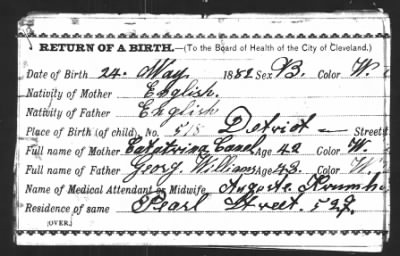 RETURN OF A BIRTH.—(To the Board of Health of the City of Cleveland.)
Date of Birth 24. May 1882 Sex B. Color W.
Nativity of Mother English.
Nativity of Father English
Place of Birth (of child), No. 518 Detriot — Street
Full name of Mother Catatrina Canel Age 42 Color W.
Full name of Father Georg. Williams Age 43. Color W
Name of Medical Attendant or Midwife, Auguste. Krumh
Residence of same Pearl Street. 529.
(OVER.)